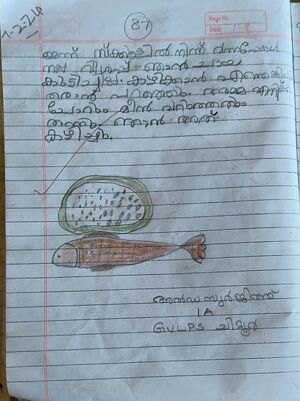 7-2-24
87
Page No.
Date
ഇന്ന് സ്കൂളിൽ നിന്ന് വന്നപ്പോൾ
നല്ല വിശപ്പ് ഞാൻ ചായ
കുടിച്ചു കഴിക്കാൻ എന്തെങ്കി
തരാൻ പറഞ്ഞു അമ്മ എനിക്ക്
ചോറും മീൻ വറുത്തതും
തന്നു. ഞാൻ അത്
കഴിച്ചു.
1A
GVLPS ചിറ്റൂർ